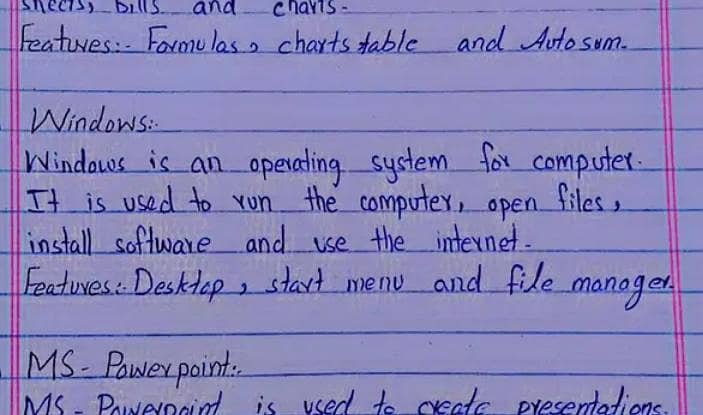 sheets, bills and charts.
Features:- Formulas, charts table and Autosum.
Windows:-
Windows is an operating system for computer.
It is used to run the computer, open files,
install software and use the internet.
Features:- Desktop, start menu and file manager.
MS-Powerpoint:-
MS-Powerpoint is used to create presentations.